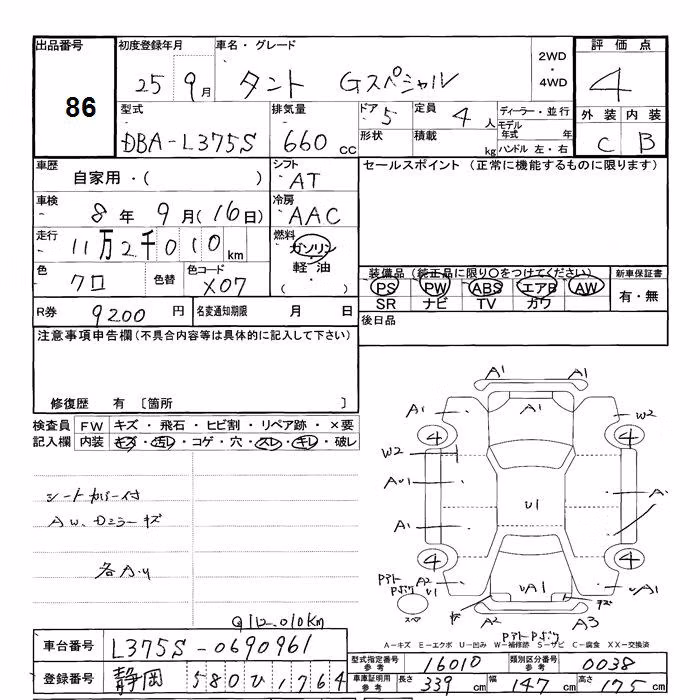 出品番号
86
初度登録年月
25 9月
車名・グレード
タント Gスペシャル
2WD
・
4WD
評価点
4
外装 内装
C B
型式
DBA-L375S
排気量
660cc
ドア
5
定員
4人
形状
積載
kg
ディーラー・並行
モデル年式 年
ハンドル 左・右
車歴
自家用・( )
シフト
AT
セールスポイント (正常に機能するものに限ります)
車検
8年 9月(16日)
冷房
AAC
走行
11万2千010km
燃料
ガソリン
・
軽油
・
( )
色
クロ
色替
色コード
X07
装備品(純正品に限り○をつけてください)
PS PW ABS エアB AW
SR ナビ TV カワ
新車保証書
有・無
R券 9200円
名変通知期限 月 日
後日品
注意事項申告欄(不具合内容等は具体的に記入して下さい)
修復歴 有 〔箇所 〕
検査員記入欄
FW キズ・飛石・ヒビ割・リペア跡・×要
内装 キズ・汚レ・コゲ・穴・スレ・キレ・破レ
シートカバー付
AW、Dミラーキズ
各A・U
Q112,010km
A1 A1
A1 W2
4 4
W2
AU1 U1 A
A1
4 4
A2
U1
UA1 UA1
スペア
A2 A3
A-キズ E-エクボ U-凹み W-補修跡 S-サビ C-腐食 XX-交換済
車台番号 L375S-0690961
登録番号 静岡 580 ひ 1764
型式指定番号 参考 16010
類別区分番号 参考 0038
車庫証明用 参考 長さ 339cm 幅 147cm 高さ 175cm